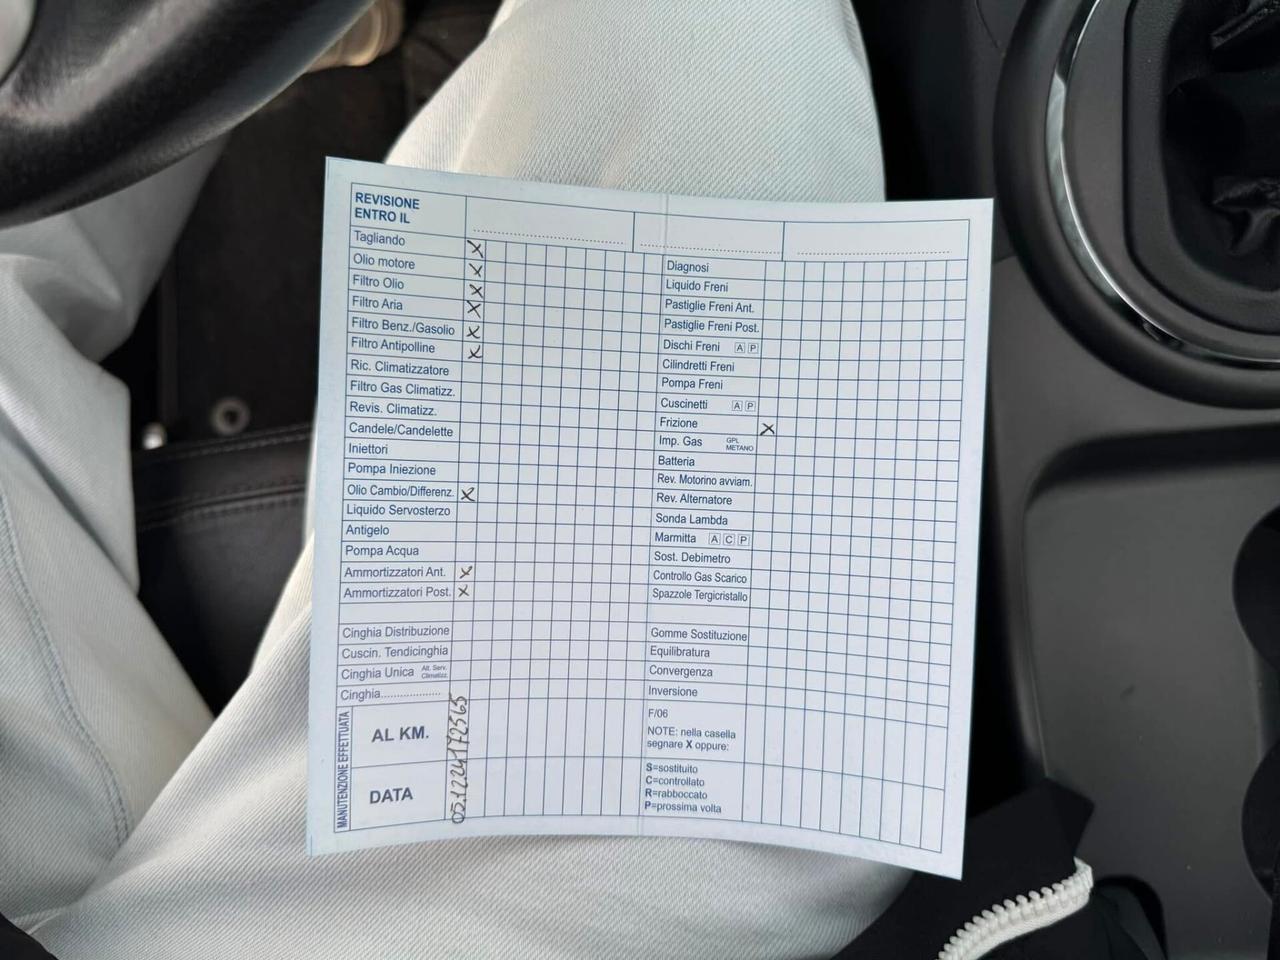 REVISIONE
ENTRO IL
Tagliando X
Olio motore X
Filtro Olio X
Filtro Aria X
Filtro Benz./Gasolio X
Filtro Antipolline X
Ric. Climatizzatore
Filtro Gas Climatizz.
Revis. Climatizz.
Candele/Candelette
Iniettori
Pompa Iniezione
Olio Cambio/Differenz. X
Liquido Servosterzo
Antigelo
Pompa Acqua
Ammortizzatori Ant. X
Ammortizzatori Post. X
Cinghia Distribuzione
Cuscin. Tendicinghia
Cinghia Unica Alt. Serv. Climatizz.
Cinghia....................
MANUTENZIONE EFFETTUATA
AL KM. 172565
DATA 05.12.24
Diagnosi
Liquido Freni
Pastiglie Freni Ant.
Pastiglie Freni Post.
Dischi Freni A P
Cilindretti Freni
Pompa Freni
Cuscinetti A P
Frizione X
Imp. Gas GPL METANO
Batteria
Rev. Motorino avviam.
Rev. Alternatore
Sonda Lambda
Marmitta A C P
Sost. Debimetro
Controllo Gas Scarico
Spazzole Tergicristallo
Gomme Sostituzione
Equilibratura
Convergenza
Inversione
F/06
NOTE: nella casella
segnare X oppure:
S=sostituito
C=controllato
R=rabboccato
P=prossima volta